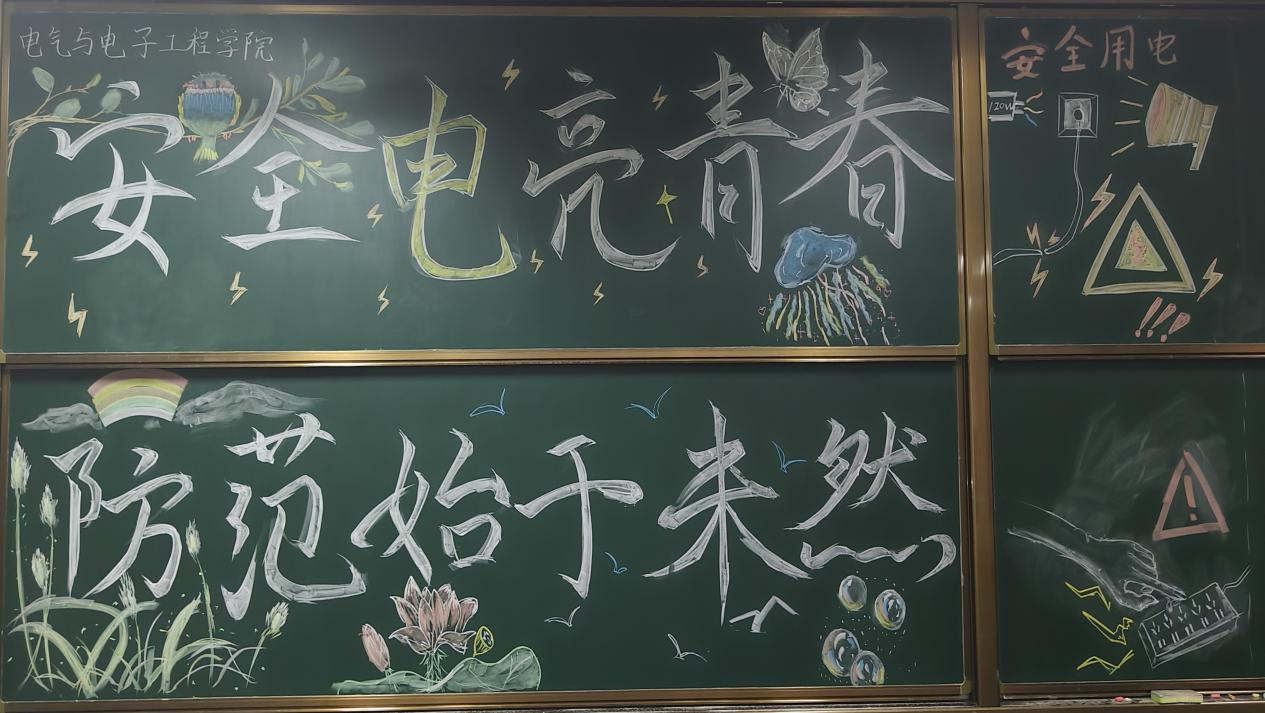 电气与电子工程学院
安全电亮青春
防范始于未然
安全用电
120W
!!!
!